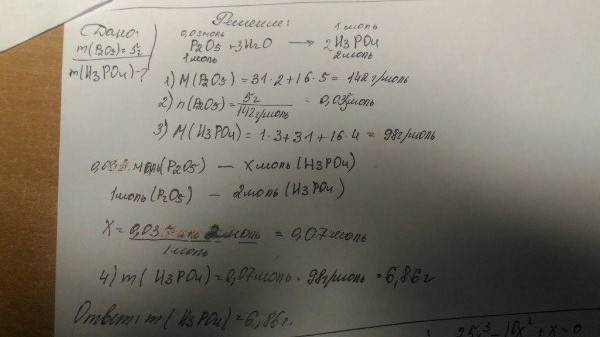 Решение:
Дано:
m(P2O5)=5г
m(H3PO4)-?
0,03моль
1 моль
P2O5 + 3H2O → 2H3PO4
1моль
2моль
1) M(P2O5) = 31·2+16·5 = 142г/моль
2) n(P2O5) = 5г / 142г/моль = 0,035моль
3) M(H3PO4) = 1·3+31+16·4 = 98г/моль
0,035 моль(P2O5) — X моль (H3PO4)
1моль(P2O5) — 2моль (H3PO4)
X = 0,035 моль 2 моль / 1моль = 0,07моль
4) m(H3PO4) = 0,07моль · 98г/моль = 6,86г
Ответ: m(H3PO4)=6,86г.
25x³ - 10x² + x = 0